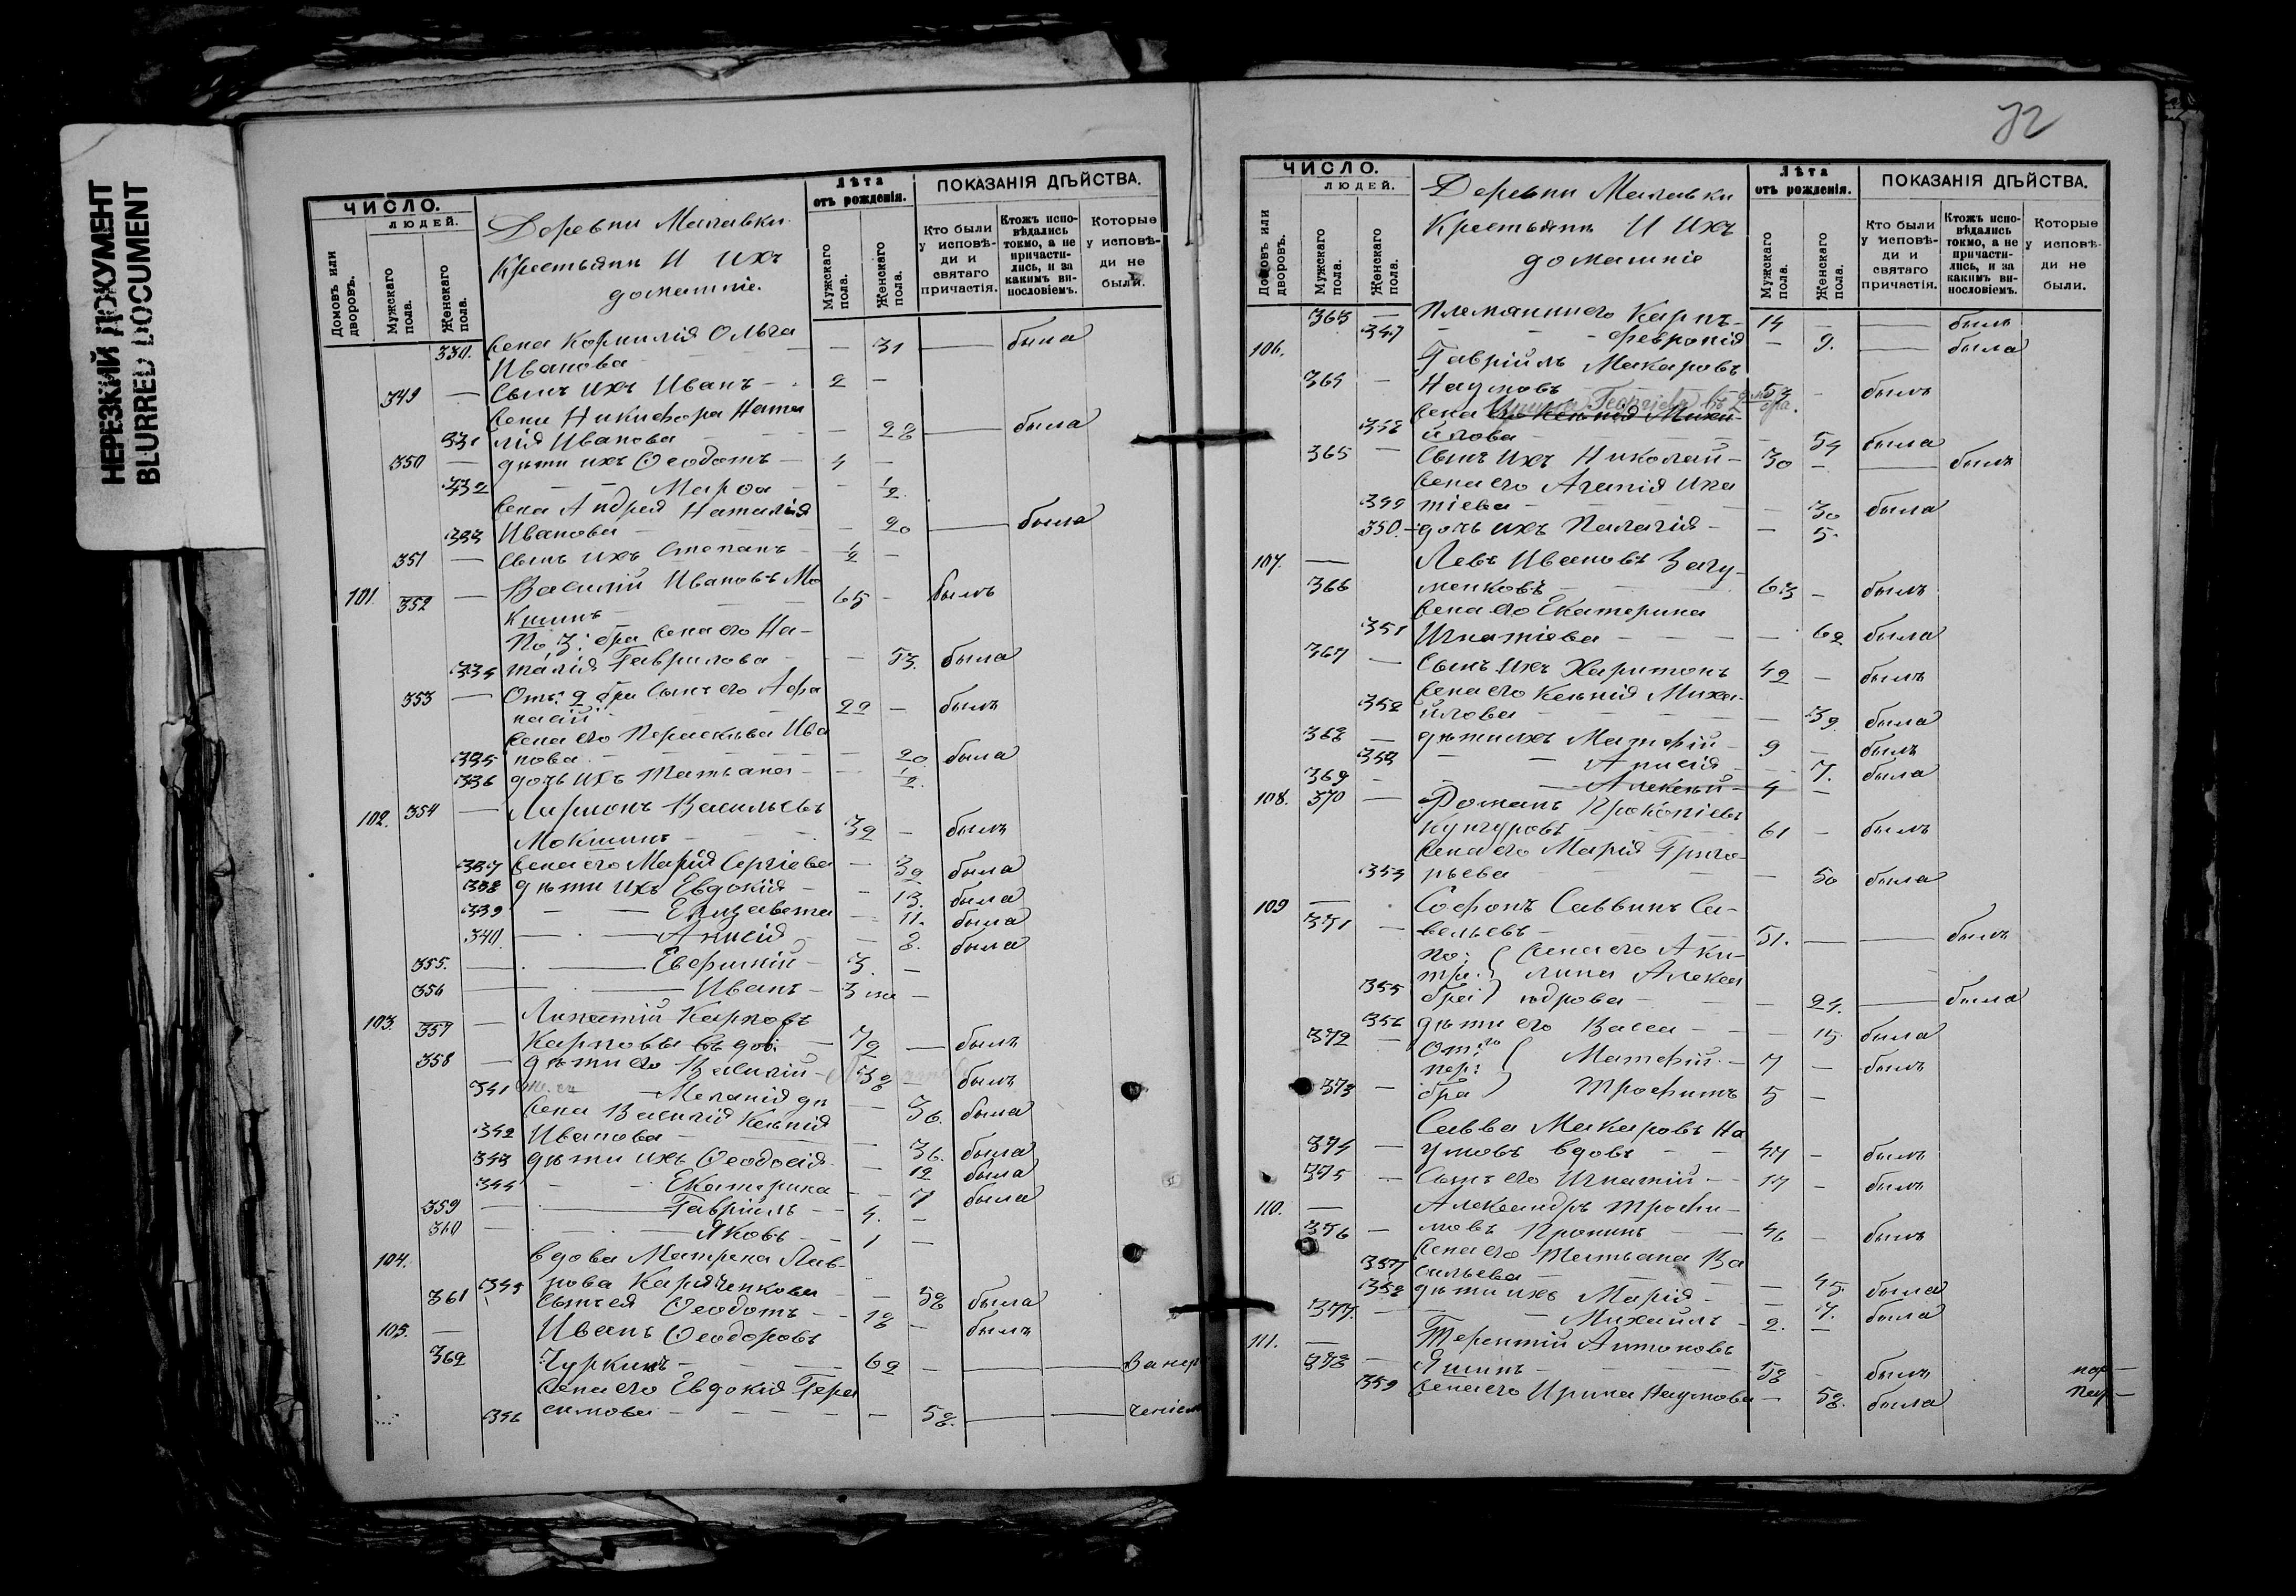 НЕРЕЗКИЙ ДОКУМЕНТ
BLURRED DOCUMENT
ЧИСЛО.
ЛЮДЕЙ.
Домовъ или дворовъ.
Мужскаго пола.
Женскаго пола.
Деревни Малавки
Крестьянъ И ихъ
домашніе.
Лѣта
отъ рожденія.
Мужскаго пола.
Женскаго пола.
ПОКАЗАНІЯ ДѢЙСТВА.
Кто были у исповѣди и святаго причастія.
Ктожъ исповѣдались токмо, а не причастились, и за какимъ винословіемъ.
Которые у исповѣди не были.
330. Жена Корнилія Ольга
Иванова — 31 — была
349 — Сынъ ихъ Иванъ — 2 —
Жена Никифора Ната
331 лія Иванова — 28 — была
350 — дѣти ихъ Ѳеодотъ — 4 —
332 — Марѳа — 1/2.
Жена Андрея Наталія
333 Иванова — 20 — была
351 — Сынъ ихъ Степанъ — 1/2 —
101 352 — Василій Ивановъ Мо
кшинъ — 65 — былъ
По 3: бра Жена его На-
334 талія Гаврилова — 53. была
353 — Отъ 2 бра Сынъ его Афа
насій — 22 — былъ
Жена его Параскева Ива
335 нова — 20 была
336 дочь ихъ Татьяна — 1/2.
102. 354 — Ларионъ Васильевъ
Мокшинъ — 32 — былъ
337 Жена его Марія Сергіева — 32 была
338 дѣти ихъ Евдокія — 13. была
339 — Елизавета — 11. была
340. — Анисія — 8. была
355. — Евфимій — 3. —
356 — Иванъ — 3 —
103. 357 — Липатій Карповъ
Карповъ вдов. — 72 — былъ
358 — дѣти его Василій — 38 — былъ
341 — Меланія дѣ — 36. была
Жена Василія Ксенія
342 Иванова — 36. была
343 дѣти ихъ Ѳеодосія — 12 была
344 — Екатерина — 7 была
359 — Гавріилъ — 4. —
360 — Яковъ — 1 —
104. вдова Матрена Лав-
345 рова Карпченкова — 58 была
361 Сынъ ея Ѳеодотъ — 18 — былъ
105. — Иванъ Ѳеодоровъ
362 Чуркинъ — 62 —
Жена его Евдокія Гера
346 симова — 58.
72
ЧИСЛО.
ЛЮДЕЙ.
Домовъ или дворовъ.
Мужскаго пола.
Женскаго пола.
Деревни Малавки
Крестьянъ И ихъ
домашніе
Лѣта
отъ рожденія.
Мужскаго пола.
Женскаго пола.
ПОКАЗАНІЯ ДѢЙСТВА.
Кто были у исповѣди и святаго причастія.
Ктожъ исповѣдались токмо, а не причастились, и за какимъ винословіемъ.
Которые у исповѣди не были.
363 — Племянники его Карпъ — 14 — былъ
347 — Февронія — 9. — была
106. Гавріилъ Макаровъ
364 — Наумовъ — 53 — былъ
Жена Ксенія Михай-
348 йлова — 54 была
365 — Сынъ ихъ Николай — 30 — былъ
Жена его Агапія Игна
349 тіева — 30 была
350. — дочь ихъ Палагія — 5.
107. — Левъ Ивановъ Загу-
366 менковъ — 63 — былъ
Жена его Екатерина
351 Игнатіева — 62 была
367 — Сынъ ихъ Харитонъ 42 — былъ
Жена его Ксенія Михай-
352 йлова — 39. была
368 — дѣти ихъ Матѳій — 9 — былъ
353 — Анисія — 7. была
369 — Алексѣй — 4 —
108. 370 — Романъ Прокопіевъ
Кунгуровъ — 61 — былъ
Жена его Марія Григо-
354 рьева — 50 была
109 — Софонъ Саввинъ Са-
371 — вельевъ — 51. — былъ
По: Жена его Аки-
тре. лина Алекса
355 бра ндрова — 24. — была
356 дѣти его Васса — 15. была
372 — Отъ Матѳій — 7 — былъ
пер:
373 — бра Трофимъ 5 —
Савва Макаровъ На
374 — умовъ вдовъ — 47 — былъ
375 — Сынъ его Игнатій — 17 — былъ
110. — Александръ Трофи-
376 — мовъ Пронинъ — 46 — былъ
Жена его Татьяна Ва
357 сильева — 45. была
358 дѣти ихъ Марія — 7. была
377. — Михаилъ — 2. —
111. — Терентій Антоновъ
378 — Яшинъ — 58 — былъ
359 Жена его Ирина Наумова — 58. была